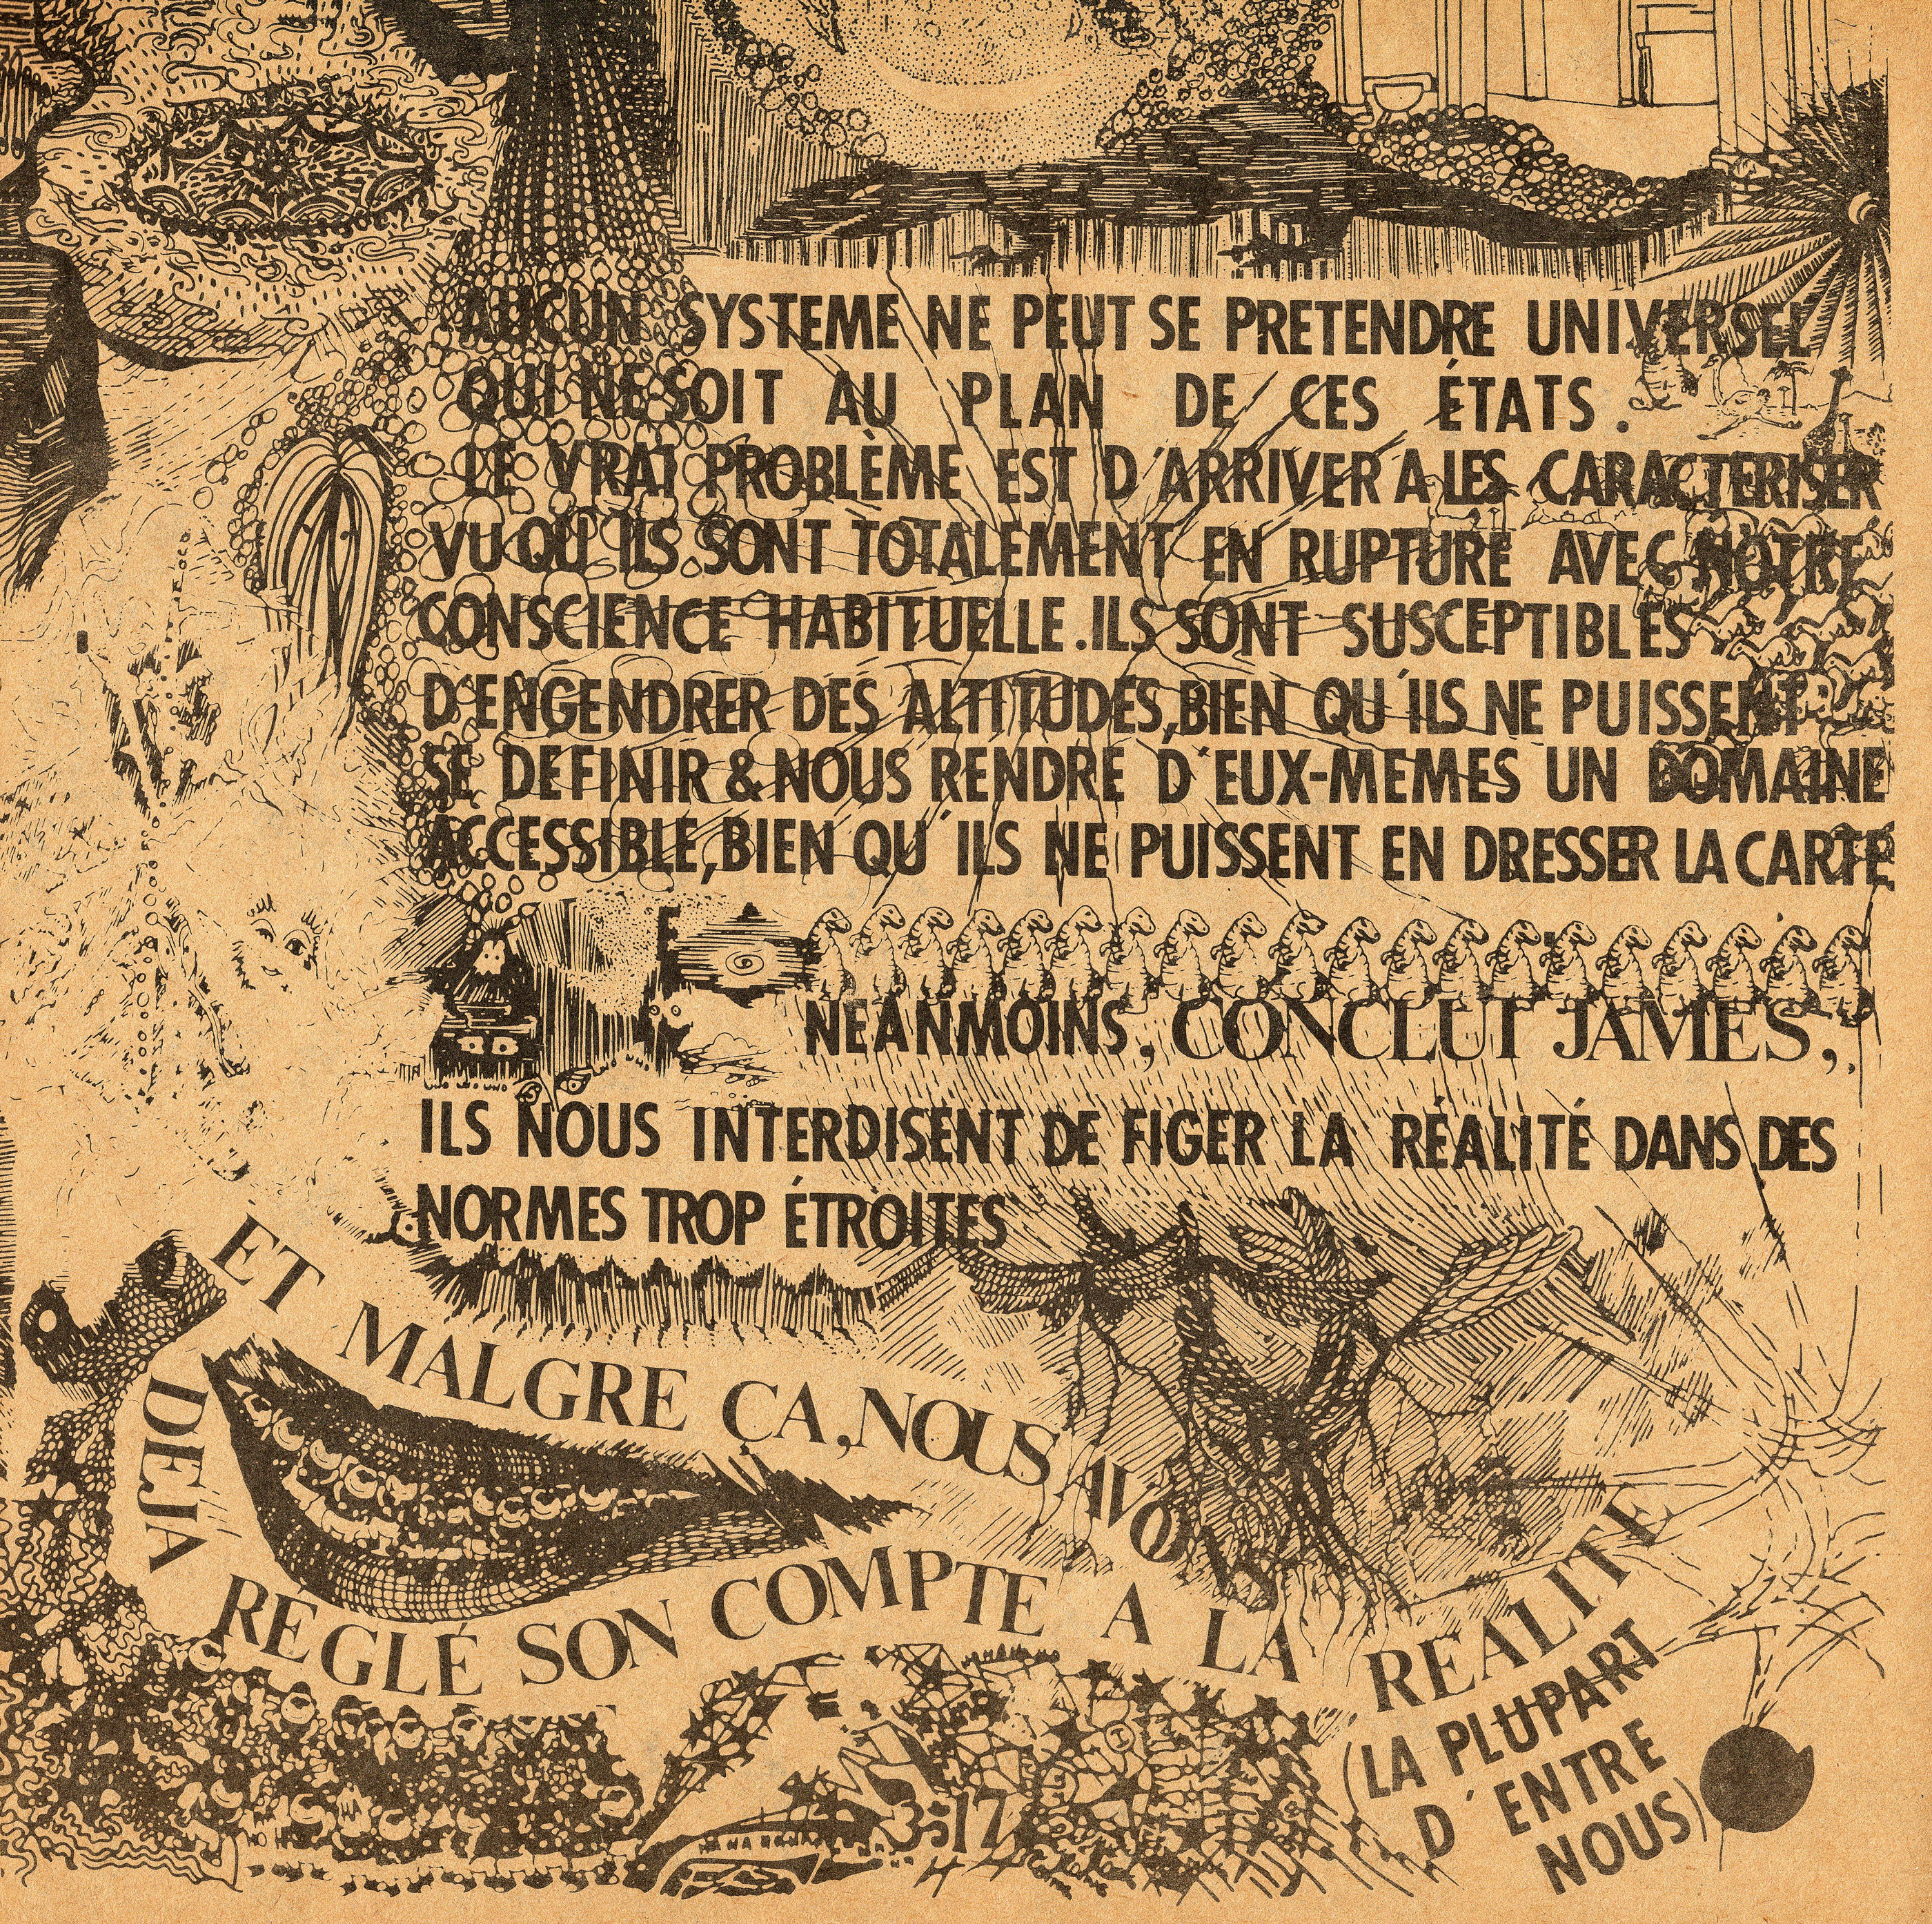 AUCUN SYSTEME NE PEUT SE PRETENDRE UNIVERSEL
QUI NE SOIT AU PLAN DE CES ÉTATS.
LE VRAI PROBLÈME EST D'ARRIVER A LES CARACTERISER
VU QU'ILS SONT TOTALEMENT EN RUPTURE AVEC NOTRE
CONSCIENCE HABITUELLE. ILS SONT SUSCEPTIBLES
D'ENGENDRER DES ALTITUDES, BIEN QU'ILS NE PUISSENT
SE DEFINIR & NOUS RENDRE D'EUX-MEMES UN DOMAINE
ACCESSIBLE, BIEN QU'ILS NE PUISSENT EN DRESSER LA CARTE
NEANMOINS, CONCLUT JAMES,
ILS NOUS INTERDISENT DE FIGER LA RÉALITÉ DANS DES
NORMES TROP ÉTROITES
ET MALGRE ÇA, NOUS AVO
DEJA
RÉGLÉ SON COMPTE A LA REALITE
(LA PLUPART
D'ENTRE
NOUS)